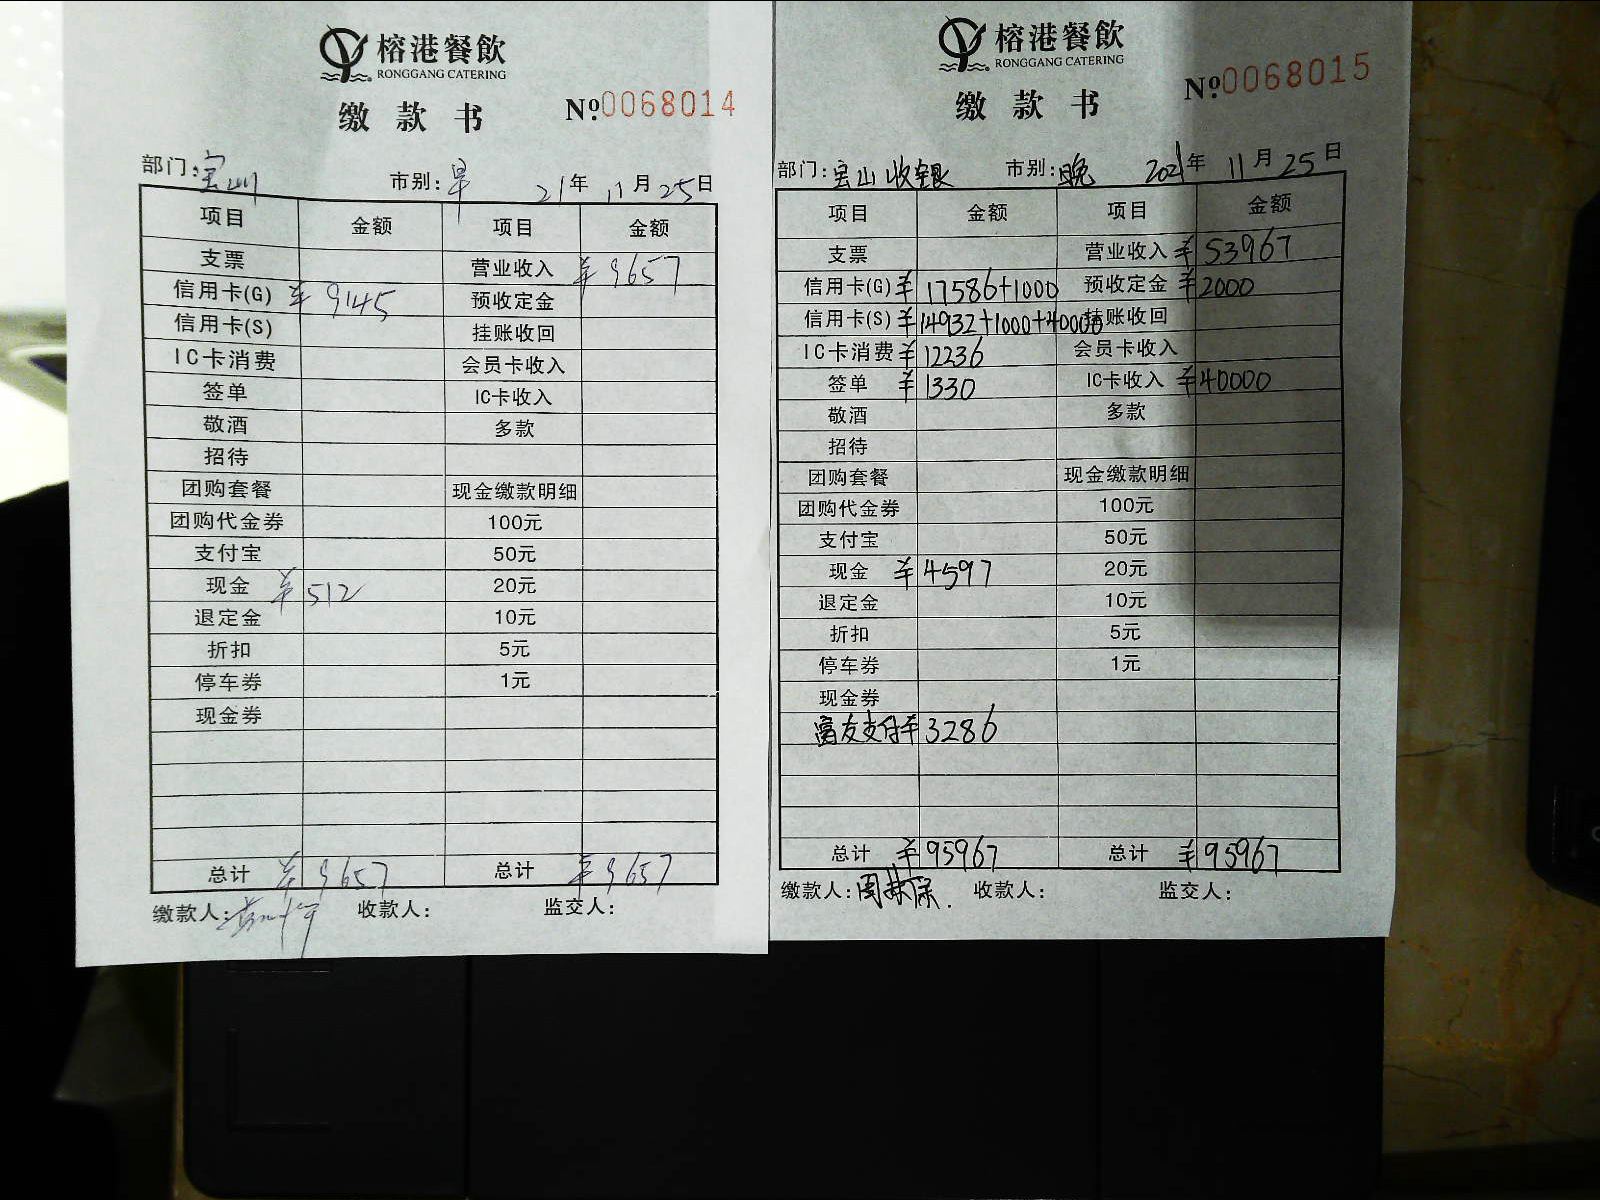 榕港餐飲
RONGGANG CATERING
缴款书 №0068014
部门:宝山 市别:早 21年11月25日
项目 金额 项目 金额
支票 营业收入 ¥9657
信用卡(G) ¥9145 预收定金
信用卡(S) 挂账收回
IC卡消费 会员卡收入
签单 IC卡收入
敬酒 多款
招待
团购套餐 现金缴款明细
团购代金券 100元
支付宝 50元
现金 ¥512 20元
退定金 10元
折扣 5元
停车券 1元
现金券
总计 ¥9657 总计 ¥9657
缴款人: 收款人: 监交人:
榕港餐飲
RONGGANG CATERING
缴款书 №0068015
部门:宝山收银 市别:晚 2021年11月25日
项目 金额 项目 金额
支票 营业收入 ¥53967
信用卡(G) ¥17586+1000 预收定金 ¥2000
信用卡(S) ¥14932+1000+40000 挂账收回
IC卡消费 ¥12236 会员卡收入
签单 ¥1330 IC卡收入 ¥40000
敬酒 多款
招待
团购套餐 现金缴款明细
团购代金券 100元
支付宝 50元
现金 ¥4597 20元
退定金 10元
折扣 5元
停车券 1元
现金券
富友支付 ¥3286
总计 ¥95967 总计 ¥95967
缴款人:周 收款人: 监交人: